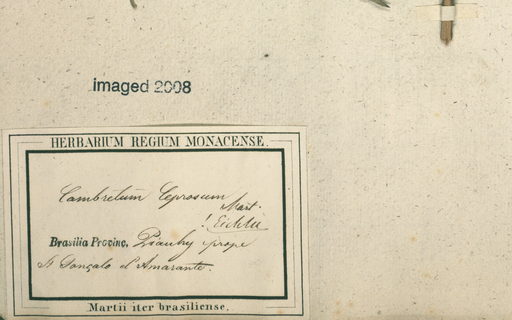 imaged 2008
HERBARIUM REGIUM MONACENSE.
Combretum leprosum
Mart.
! Eichler
Brasilia Provinc. Piauhy prope
S. Gonçalo d'Amarante.
Martii iter brasiliense.